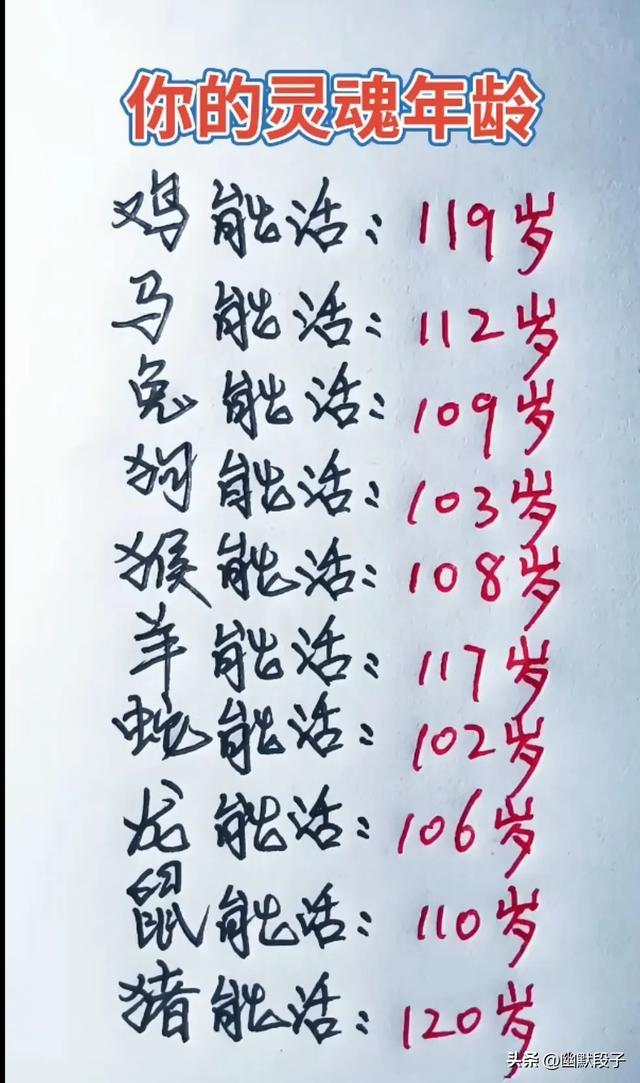 你的灵魂年龄
鸡能活：119岁
马能活：112岁
兔能活：109岁
狗能活：103岁
猴能活：108岁
羊能活：117岁
蛇能活：102岁
龙能活：106岁
鼠能活：110岁
猪能活：120岁
头条 @幽默段子